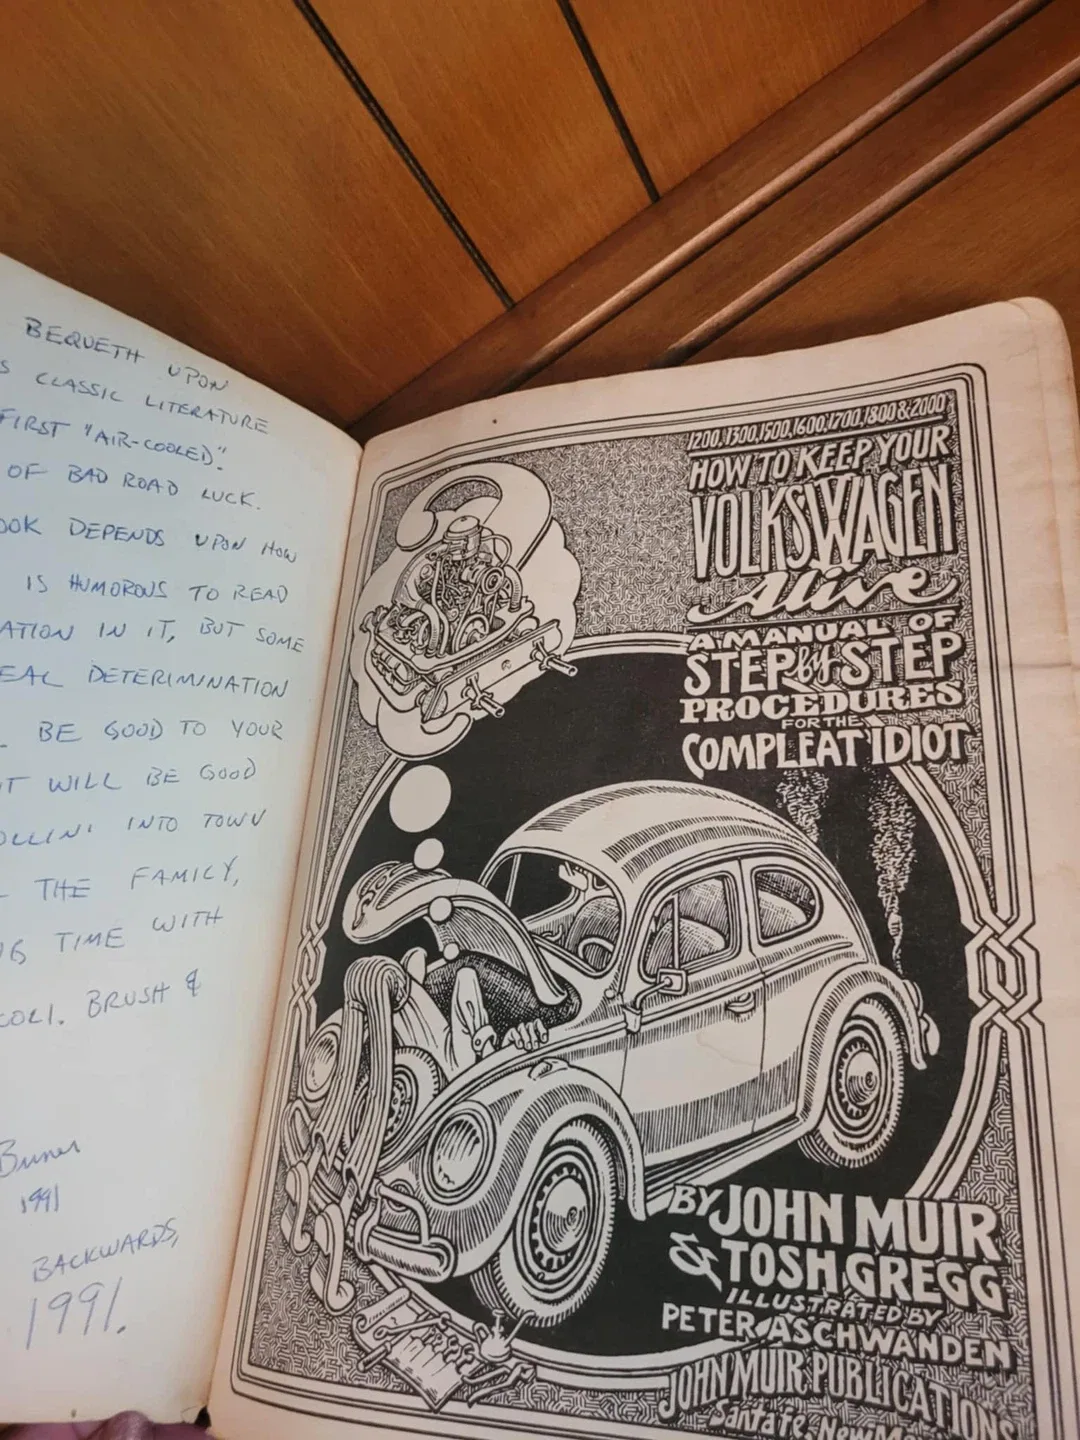 BEQUETH UPON
S CLASSIC LITERATURE
FIRST "AIR-COOLED".
OF BAD ROAD LUCK.
OOK DEPENDS UPON HOW
IS HUMOROUS TO READ
ATION IN IT, BUT SOME
EAL DETERMINATION
BE GOOD TO YOUR
IT WILL BE GOOD
OLLIN' INTO TOWN
THE FAMILY,
NG TIME WITH
COLI. BRUSH &
1991
BACKWARDS,
1991.
1200, 1300, 1500, 1600, 1700, 1800 & 2000
HOW TO KEEP YOUR
VOLKSWAGEN
Alive
A MANUAL OF
STEP by STEP
PROCEDURES
FOR THE
COMPLEAT IDIOT
BY JOHN MUIR
& TOSH GREGG
ILLUSTRATED BY
PETER ASCHWANDEN
JOHN MUIR PUBLICATIONS
Santa Fe, New Me